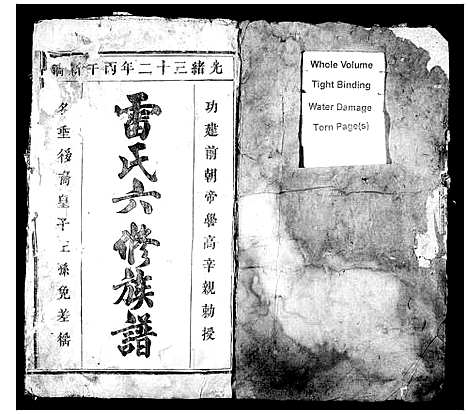 光緒三十二年丙午新鐫
功建前朝帝嚳高辛親勅授
雷氏六修族譜
名垂後裔皇子王孫免差徭
Whole Volume
Tight Binding
Water Damage
Torn Page(s)